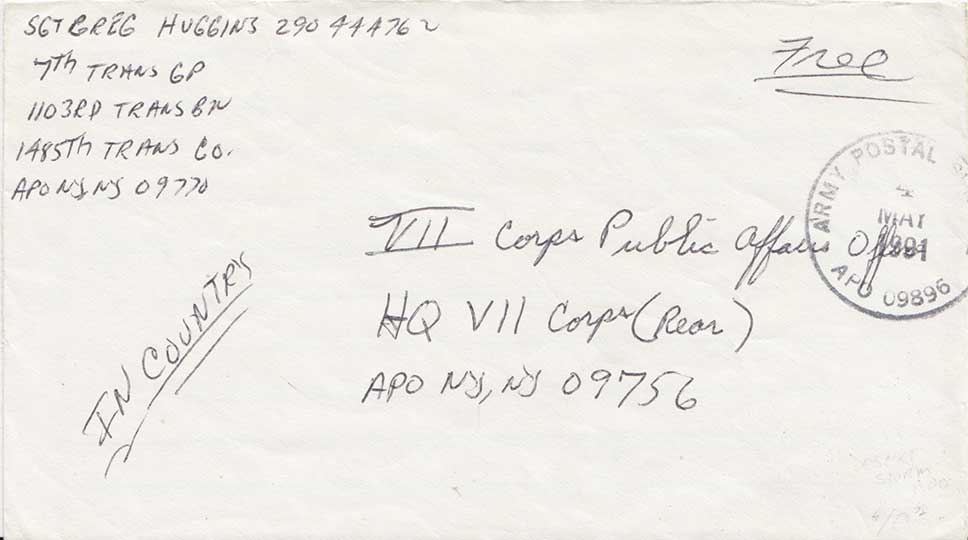 SGT GREG HUGGINS 290 44 4762
7TH TRANS GP
1103RD TRANS BN
1485TH TRANS CO.
APO NY, NY 09770
Free
ARMY POSTAL
4
MAY
1991
APO 09896
VII Corps Public Affairs Office
HQ VII Corps (Rear)
APO NY, NY 09756
IN COUNTRY
Desert
Storm
APO